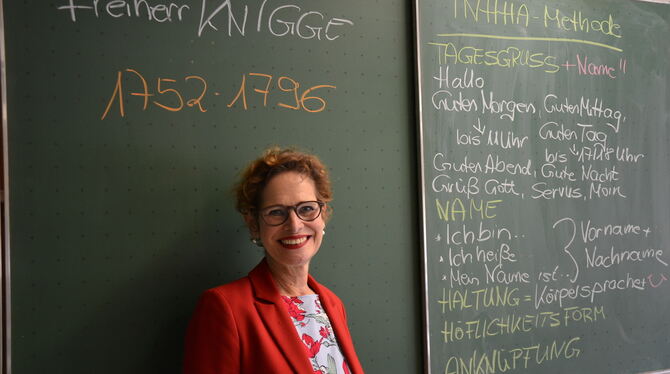 Freiherr KNIGGE
1752-1796
TNHHA-Methode
TAGESGRUSS + Name"
Hallo
Guten Morgen, Guten Mittag,
bis 11 Uhr Guten Tag
bis 17/18 Uhr
Guten Abend, Gute Nacht
Grüß Gott, Servus, Moin
NAME
* Ich bin..
* Ich heiße
* Mein Name ist..
Vorname +
Nachname
HALTUNG = Körpersprache
HÖFLICHKEITSFORM
ANKNÜPFUNG